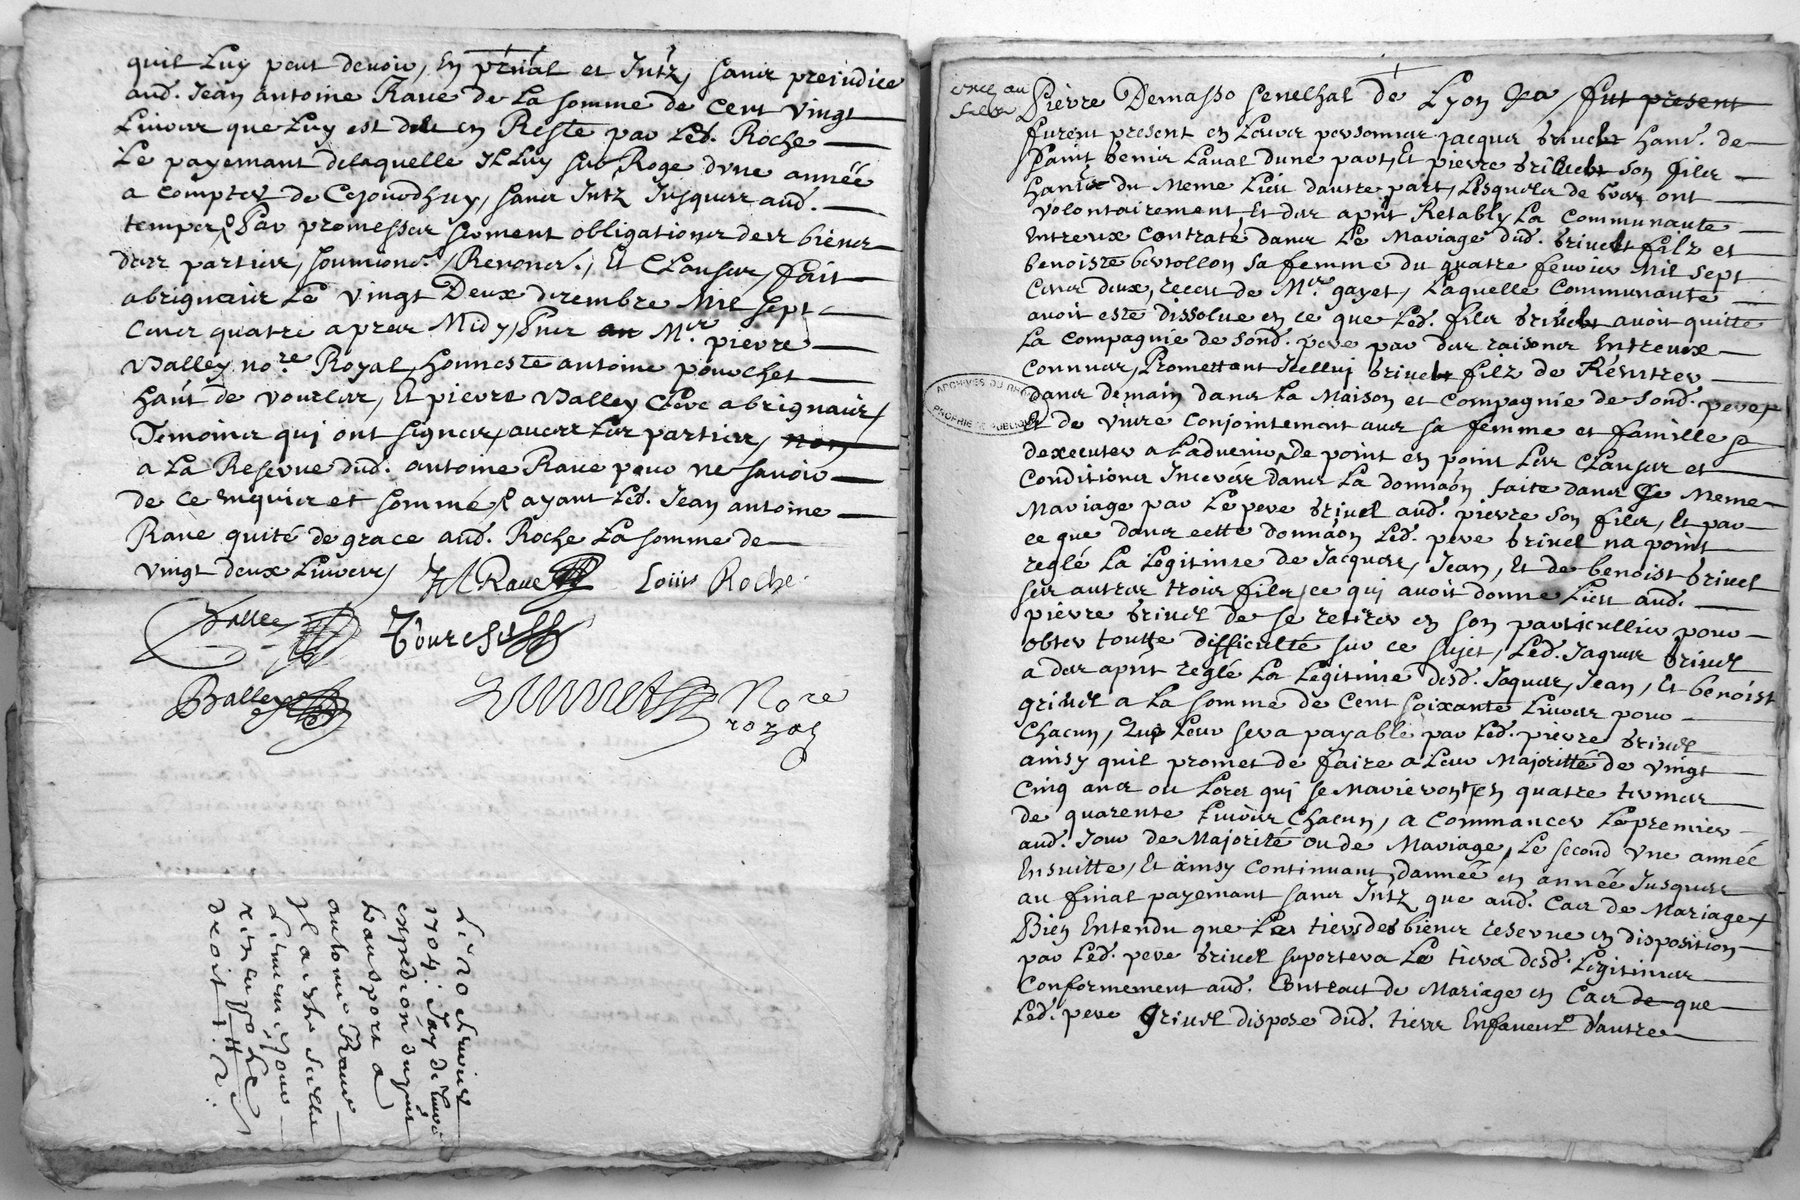 quil Luy peut devoir, En prñal et Intz, sans prejudice
aud. Jean antoine Raue de La somme de Cent vingt
Liures que Luy est due en Reste par Led. Roche
Le payemant delaquelle IL Luy sur Roge dune année
a compter de Cejourdhuy, sans Intz Jusques aud.
temps, Par promesses serment obligations des biens
des parties, soumions, Renons, Et Clauses, fait
abrignais Le vingt Deux decembre Mil sept
Cens quatre apres Midy, Pnce Mre pierre
Valley nore Royal, honneste antoine pourchet
hañt de vourles, Et pierre Valley Clerc abrignais,
Temoins qui ont signes, auec Les parties, non
a La Reserve dud. antoine Raue pour ne sauoir
de ce enquis et sommé, ayant Led. Jean antoine
Raue quité de grace aud. Roche La somme de
vingt deux Liures,
JA Raue Louis Roche
Valley
Balley
Nore
royal
Le 20 feurier
1704. Jay deliure
expedion du pñt
antoine Raue
droit
Pierre Demasso Senechal de Lyon fut present
furent present en Leurs personnes jacques briuel hant. de
Saint Genis Laual dune part, Et pierre briuel son fils
hant du Meme Lieu dautre part, Lesquels de Gres ont
volontairement Et des aprñt Retably La Communauté
Entreux Contraté dans Le Mariage dud. briuel filz et
benoiste bertollon sa femme du quatre feurier Mil sept
Cens deux, receu de Mre gayet, Laquelle Communauté
auoit esté dissolue en ce que Led. fils briuel auoit quitté
La Compagnie de sond. pere par des raisons Entreux
Connues, Promettant Icelluy briuel filz de Rentrer
dans demain dans La Maison et Compagnie de sond. pere
Et de viure Conjointement auec sa femme et famille
dexecuter a Laduenir, de point en point Les Clauses et
Conditions Incerées dans La donnaõn faite dans Ce Meme
Mariage par Le pere briuel aud. pierre son fils, Et par
ce que dans cette donnaõn Led. pere briuel na point
reglé La Legitime de Jacques, Jean, Et de benoist briuel
ses autres trois fils, ce qui auoit donne Lieu aud.
pierre briuel de se retirer en son particullier pour
obter toutte difficulté sur ce sujet, Led. Jaques briuel
a des aprñt reglé La Legitime desd. Jaques, Jean, Et benoist
griuel a La somme de Cent soixante Liures pour
Chacun, Leur sera payable par Led. pierre briuel
ainsy quil promet de faire a Leur Majoritté de vingt
Cinq ans ou Lors qui se Marieront, en quatre termes
de quarente Liures Chacun, a Commancer Le premier
aud. Jour de Majorité ou de Mariage, Le second vne année
Ensuitte, Et ainsy Continuant dannée en année Jusques
au final payemant sans Intz que aud. Cas de Mariage,
Bien Entendu que Les tiers des biens reserue en disposition
par Led. pere briuel suportera Le tiers desd. Legitimes
Conformement aud. Contract de Mariage en Cas de que
Led. pere griuel dispose dud. tiers Enfaueur dautre
ARCHIVES DU RHÔNE
PROPRIÉTÉ PUBLIQUE